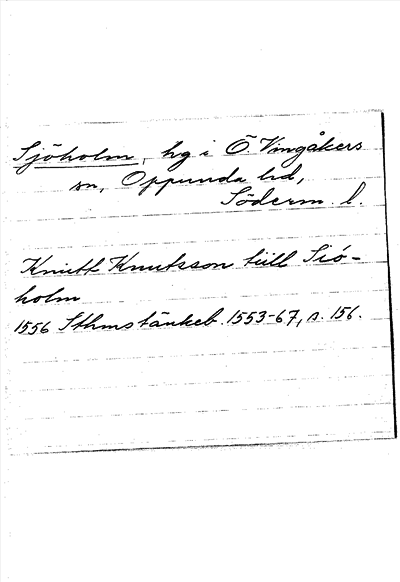 Sjöholm, hg i Ö. Vingåkers
sn, Oppunda hd,
Söderm. l.
Knutt Knutsson till Siö-
holm
1556 Sthms tänkeb. 1553-67, s. 156.